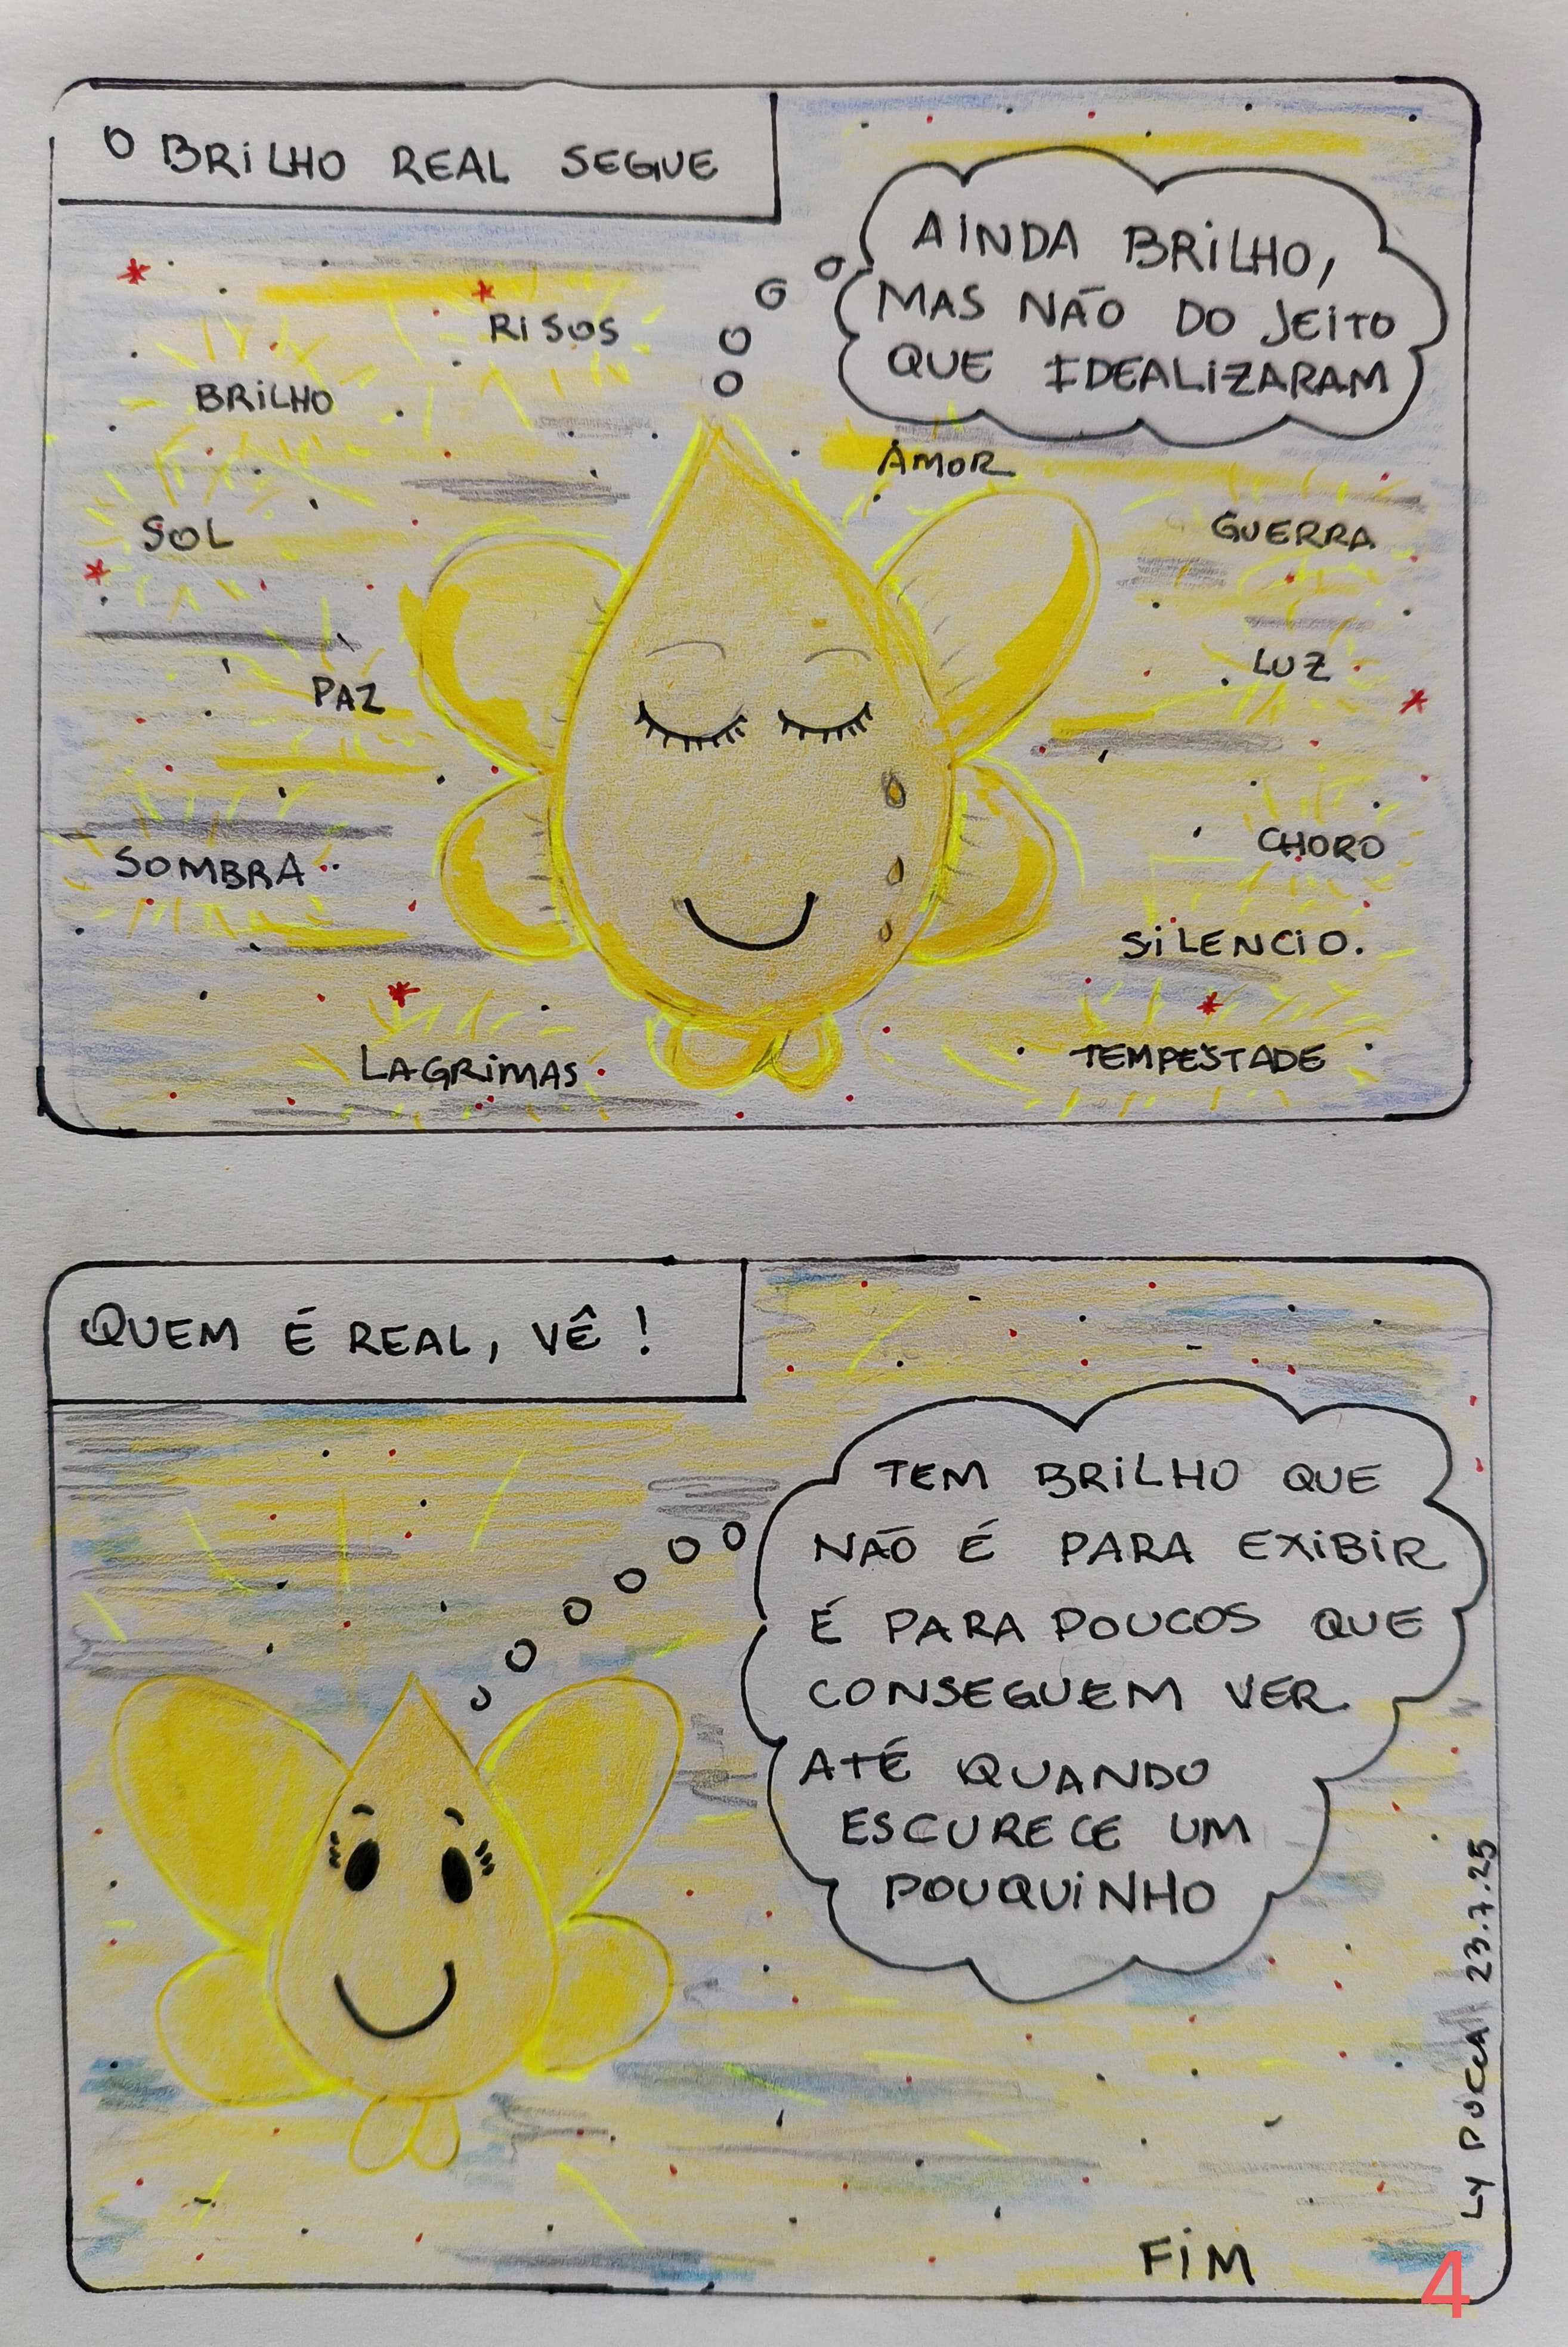 O BRiLHO REAL SEGUE
AiNDA BRiLHO,
MAS NÃO DO JEiTO
QUE IDEALiZARAM
RiSOS
BRiLHO
AMOR
SOL
GUERRA
PAZ
LUZ
SOMBRA
CHORO
SiLENCiO.
LAGRiMAS
TEMPESTADE
QUEM É REAL, VÊ!
TEM BRiLHO QUE
NÃO É PARA EXiBiR
É PARA POUCOS QUE
CONSEGUEM VER
ATÉ QUANDO
ESCURECE UM
POUQUiNHO
LY PUCCA 23.7.25
FiM
4